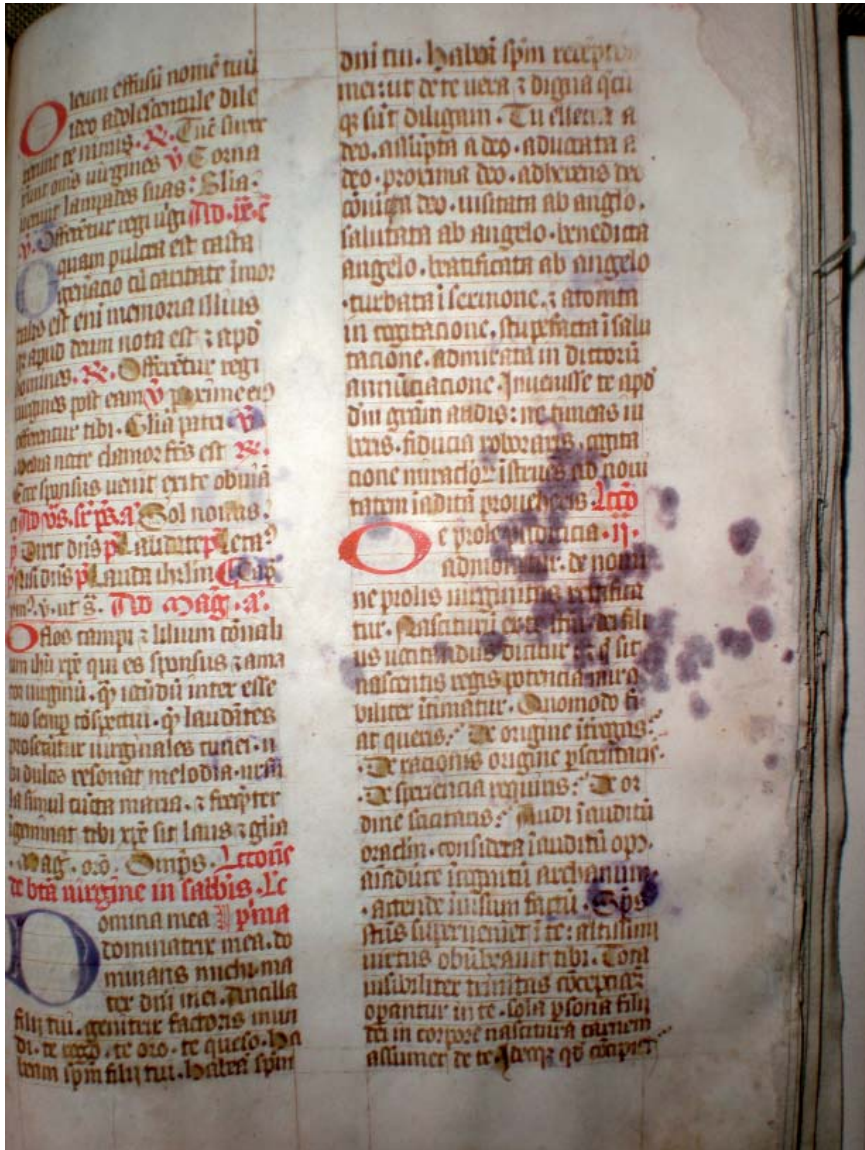 Oleum effusū nomē tuū
ideo adolescentule dile
xerunt te nimis. R̃. Tūc surre
xerunt om̄s uirgines v̄ E orna
uerunt lampades suas : Glia.
v̄. Offerētur regi ūgi Ad .
O quam pulcra est casta
generacio cū caritate īmor
talis est enī memoria illius
qr apud deum nota est ⁊ apd̄
homines. R̃. Offerētur regi
uirgines post eam v̄ Proxime ei9
offerentur tibi. Glīa patri v̄
Media nocte clamor fc̄s est R̃.
Ecce sponsus uenit exite obuiā
Sol nouas.
p̄ Dixit dn̄s p̄ Laudate p̄ Leta9
p̄ Nisi dn̄s p̄ Lauda ihrlm Cap̄
ym9. v̄. ut s̄. Ad Mag. a.
O flos campi ⁊ lilium cōuall
ium ihū xp̄e qui es sponsus ⁊ ama
tor uirginū. qr̄ iocūdū inter esse
tuo semp̄ cōspectui. qr̄ laudātes
uirginales
bi dulcis resonat melodia.
la simul cūcta maria. ⁊ freqn̄ter
īgeminat tibi xp̄e sit laus ⁊ glīa
. Mag. orō. Om̄ps. Lectiōes
de btā uirgine in sabbis. Le
Domina mea p̄ma
dominatrix mea. do
minans michi. ma
ter dn̄i mei. Ancilla
filij tui. genitrix factoris mun
di. te rogo. te oro. te queso. ha
beam sp̄m filij tui. Habeā sp̄m
dn̄i tui. Habeā sp̄m
mei : ut de te uera ⁊ digna
sūt diligam. Tu electa a
deo. assūpta a deo. aduocata a
deo. proxima deo. adherens deo
cōiūcta deo. uisitata ab anglo.
salutata ab angelo. benedicta
angelo. beatificata ab angelo
. turbata ī sermone. ⁊ atonita
in cogitacione. stupefacta ī salu
tacione. admirata in dictorū
annūciacione. Inuenisse te apd̄
dm̄ grām audis : ne timeas iu
beris. fiducia roboraris. cogita
cione miraclor̄ īstrueris ad noui
tatem īaudita proueheris Lectō
De prole .ij.
de nomi
ne prolis uirginitas certifica
tur. Nasciturū ex te
us uocitandus dicitur ⁊ q̄ sit
nascentis regis potencia mira
biliter ītimatur. Quomodo fi
at queris. De origine īrogas.
. De racionis origine pscrutaris.
. De speriencia requiris. De or
dine sciscitaris. Audi īauditū
oraclm. considera īauditū opus.
aīaduerte īcognitū archanum.
. actende īuisum factū. Sp̄s
sc̄us superueniet ī te : altissimi
uirtus obūbrauit tibi. Tota
īuisibiliter trinitas cōceptiōe
opantur in te. sola psona filij
dei in corpore nascitura carnem
assumet de te Ideoqz qd̄ cōcipiet